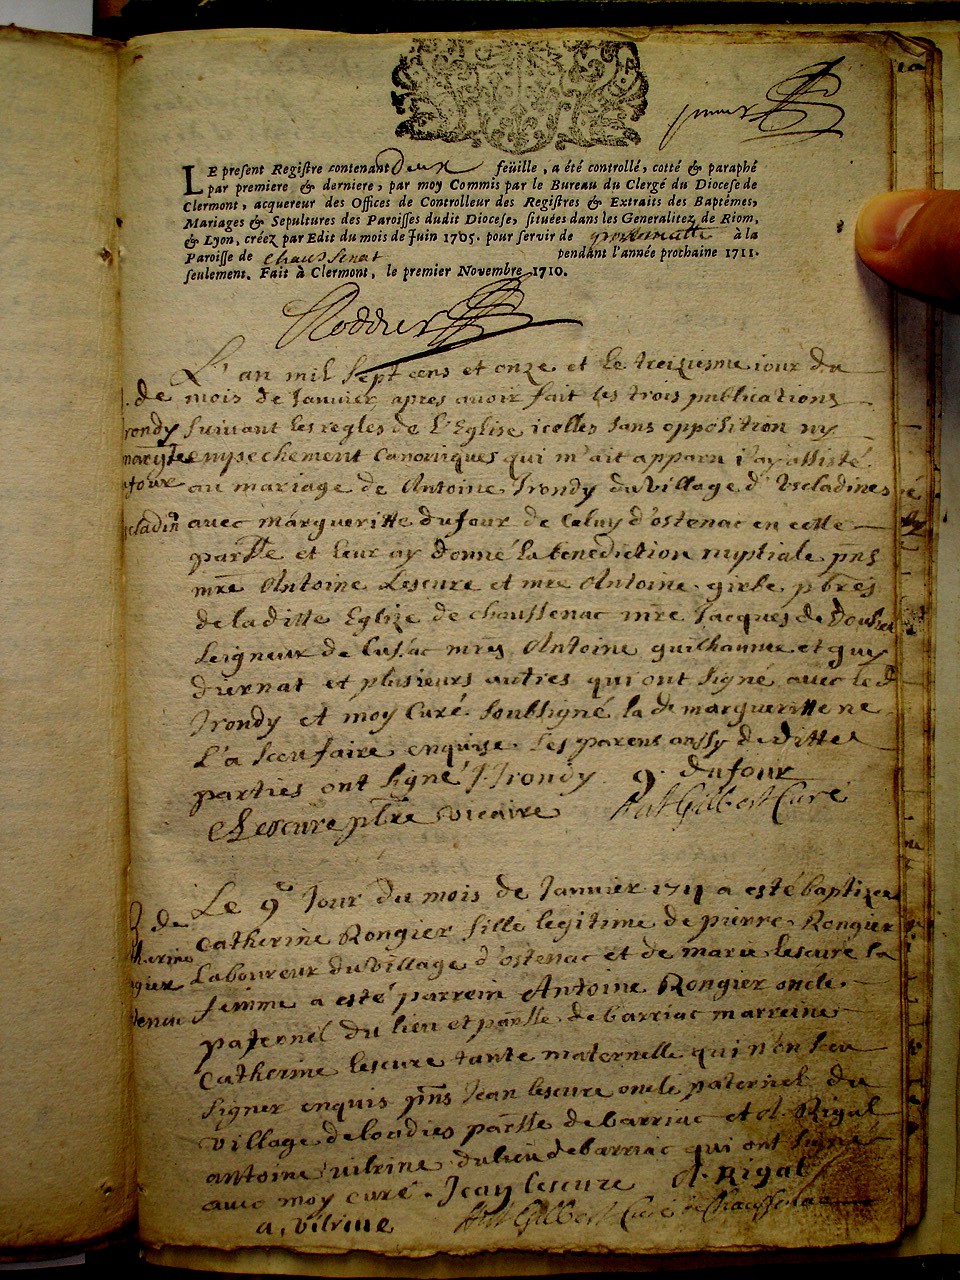 LE present Registre contenant Deux feüille, a été controllé, cotté & paraphé
par premiere & derniere, par moy Commis par le Bureau du Clergé du Diocese de
Clermont, acquereur des Offices de Controlleur des Registres & Extraits des Baptêmes,
Mariages & Sepultures des Paroisses dudit Diocese, situées dans les Generalitez de Riom,
& Lyon, créez par Edit du mois de Juin 1705. pour servir de à la
Paroisse de Chaussenat pendant l'année prochaine 1711.
seulement. Fait à Clermont, le premier Novembre 1710.
Roddier
L'an mil sept cens et onze et le treiziesme jour du
mois de Janvier apres avoir fait les trois publications
suivant les regles de L'Eglise icelles sans opposition ny
empeschement Canoniques qui m'ait apparu j'ay assisté
au mariage de Antoine Trondy du village d'Escladines
avec margueritte dufour de Celuy d'ostenac en cette
parsse et leur ay donné la benediction nuptiale pns
mre Antoine Lescure et mre Antoine girbe pbres
de la ditte Eglize de chaussenac mre Jacques de Douhet
seigneur de Cussac mres Antoine guilhaume et guy
diernat et plusieurs autres qui ont signé avec le d
Trondy et moy Curé soubsigné la de margueritte ne
L'a sceu faire enquise les parens aussy de dittes
parties ont signé J. Trondy g. dufour
Lescure ptre vicaire Gilbert Curé
de
rondy
margte
ufour
scladin
Le 9e Jour du mois de Janvier 1711 a esté baptizee
Catherine Rongier fille legitime de pierre Rongier
Laboureur du village d'ostenac et de marie lescure sa
femme a esté parrein Antoine Rongier oncle
paternel du lieu et parsse de barriac marreine
Catherine lescure tante maternelle qui n'on sceu
signer enquis pns Jean lescure oncle paternel du
village de parsse de barriac et A. Rigal
antoine vilrine du lieu de barriac qui ont signé
avec moy curé. Jean lescure A. Rigal
a. vilrine Gilbert Curé de Chaussenac
de
therine
ngier
tenac